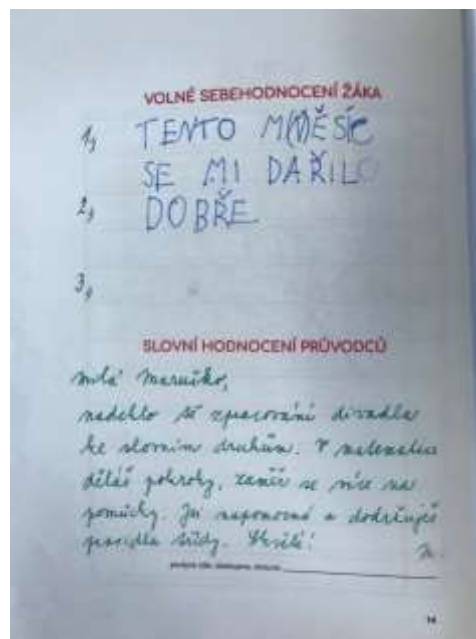 VOLNÉ SEBEHODNOCENÍ ŽÁKA
1, TENTO M(N)ĚSÍC
SE MI DAŘILO
2, DOBŘE
3,
SLOVNÍ HODNOCENÍ PRŮVODCŮ
Milá Maruško,
nadchlo tě zpracování divadla
ke slovním druhům. V matematice
děláš pokroky, zaměř se více na
pomůcky. Jsi nápomocná a dodržuješ
pravidla třídy. Skvělé!
14